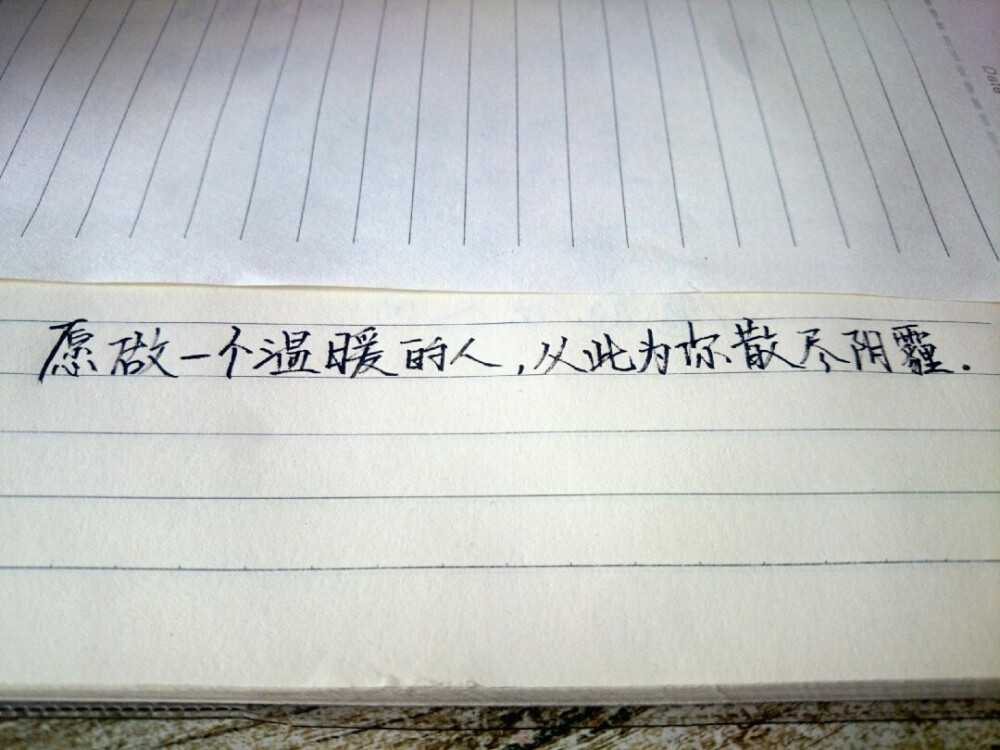 愿做一个温暖的人,从此为你散尽阴霾.
Date